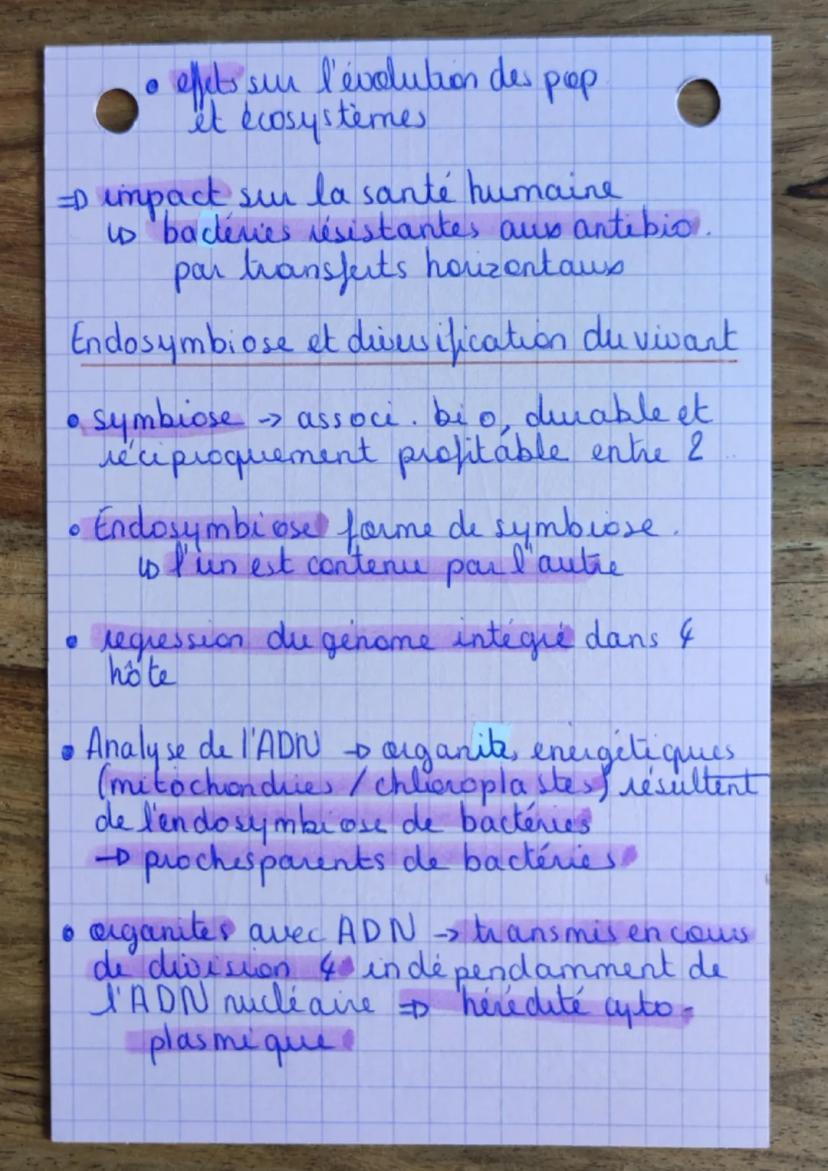 • effets sur l'évolution des pop
et écosystèmes
⇒ impact sur la santé humaine
↳ bactéries résistantes aux antibio.
par transferts horizontaux
Endosymbiose et diversification du vivant
• symbiose → associ. bio, durable et
réciproquement profitable entre 2
• Endosymbiose forme de symbiose.
↳ l'un est contenu par l'autre
• regression du génome intégré dans ¢
hôte
• Analyse de l'ADN → organite, energétiques
(mitochondries / chloroplastes) résultent
de l'endosymbiose de bactéries
→ proches parents de bactéries
• organites avec ADN → transmis en cours
de division ¢ indépendamment de
l'ADN nucléaire ⇒ hérédité cyto-
plasmique